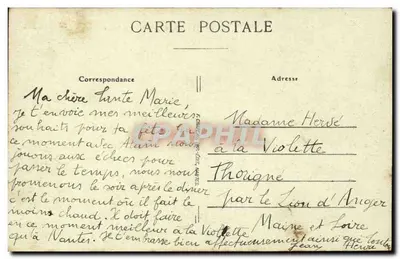 CARTE POSTALE
Correspondance
Adresse
Ma chère Tante Marie,
je t'envoie mes meilleurs
souhaits pour ta fête. En
ce moment avec Alain nous
jouons aux échecs pour
passer le temps, nous nous
promenons le soir après le diner
c'est le moment où il fait le
moins chaud. Il doit faire
en ce moment meilleur à la Violette
qu'à Nantes. Je t'embrasse bien affectueusement ainsi que
Jean Hervé
Madame Hervé
à la Violette
Thorigné
par le Lion d'Anger
Maine et Loire
CPARAMA